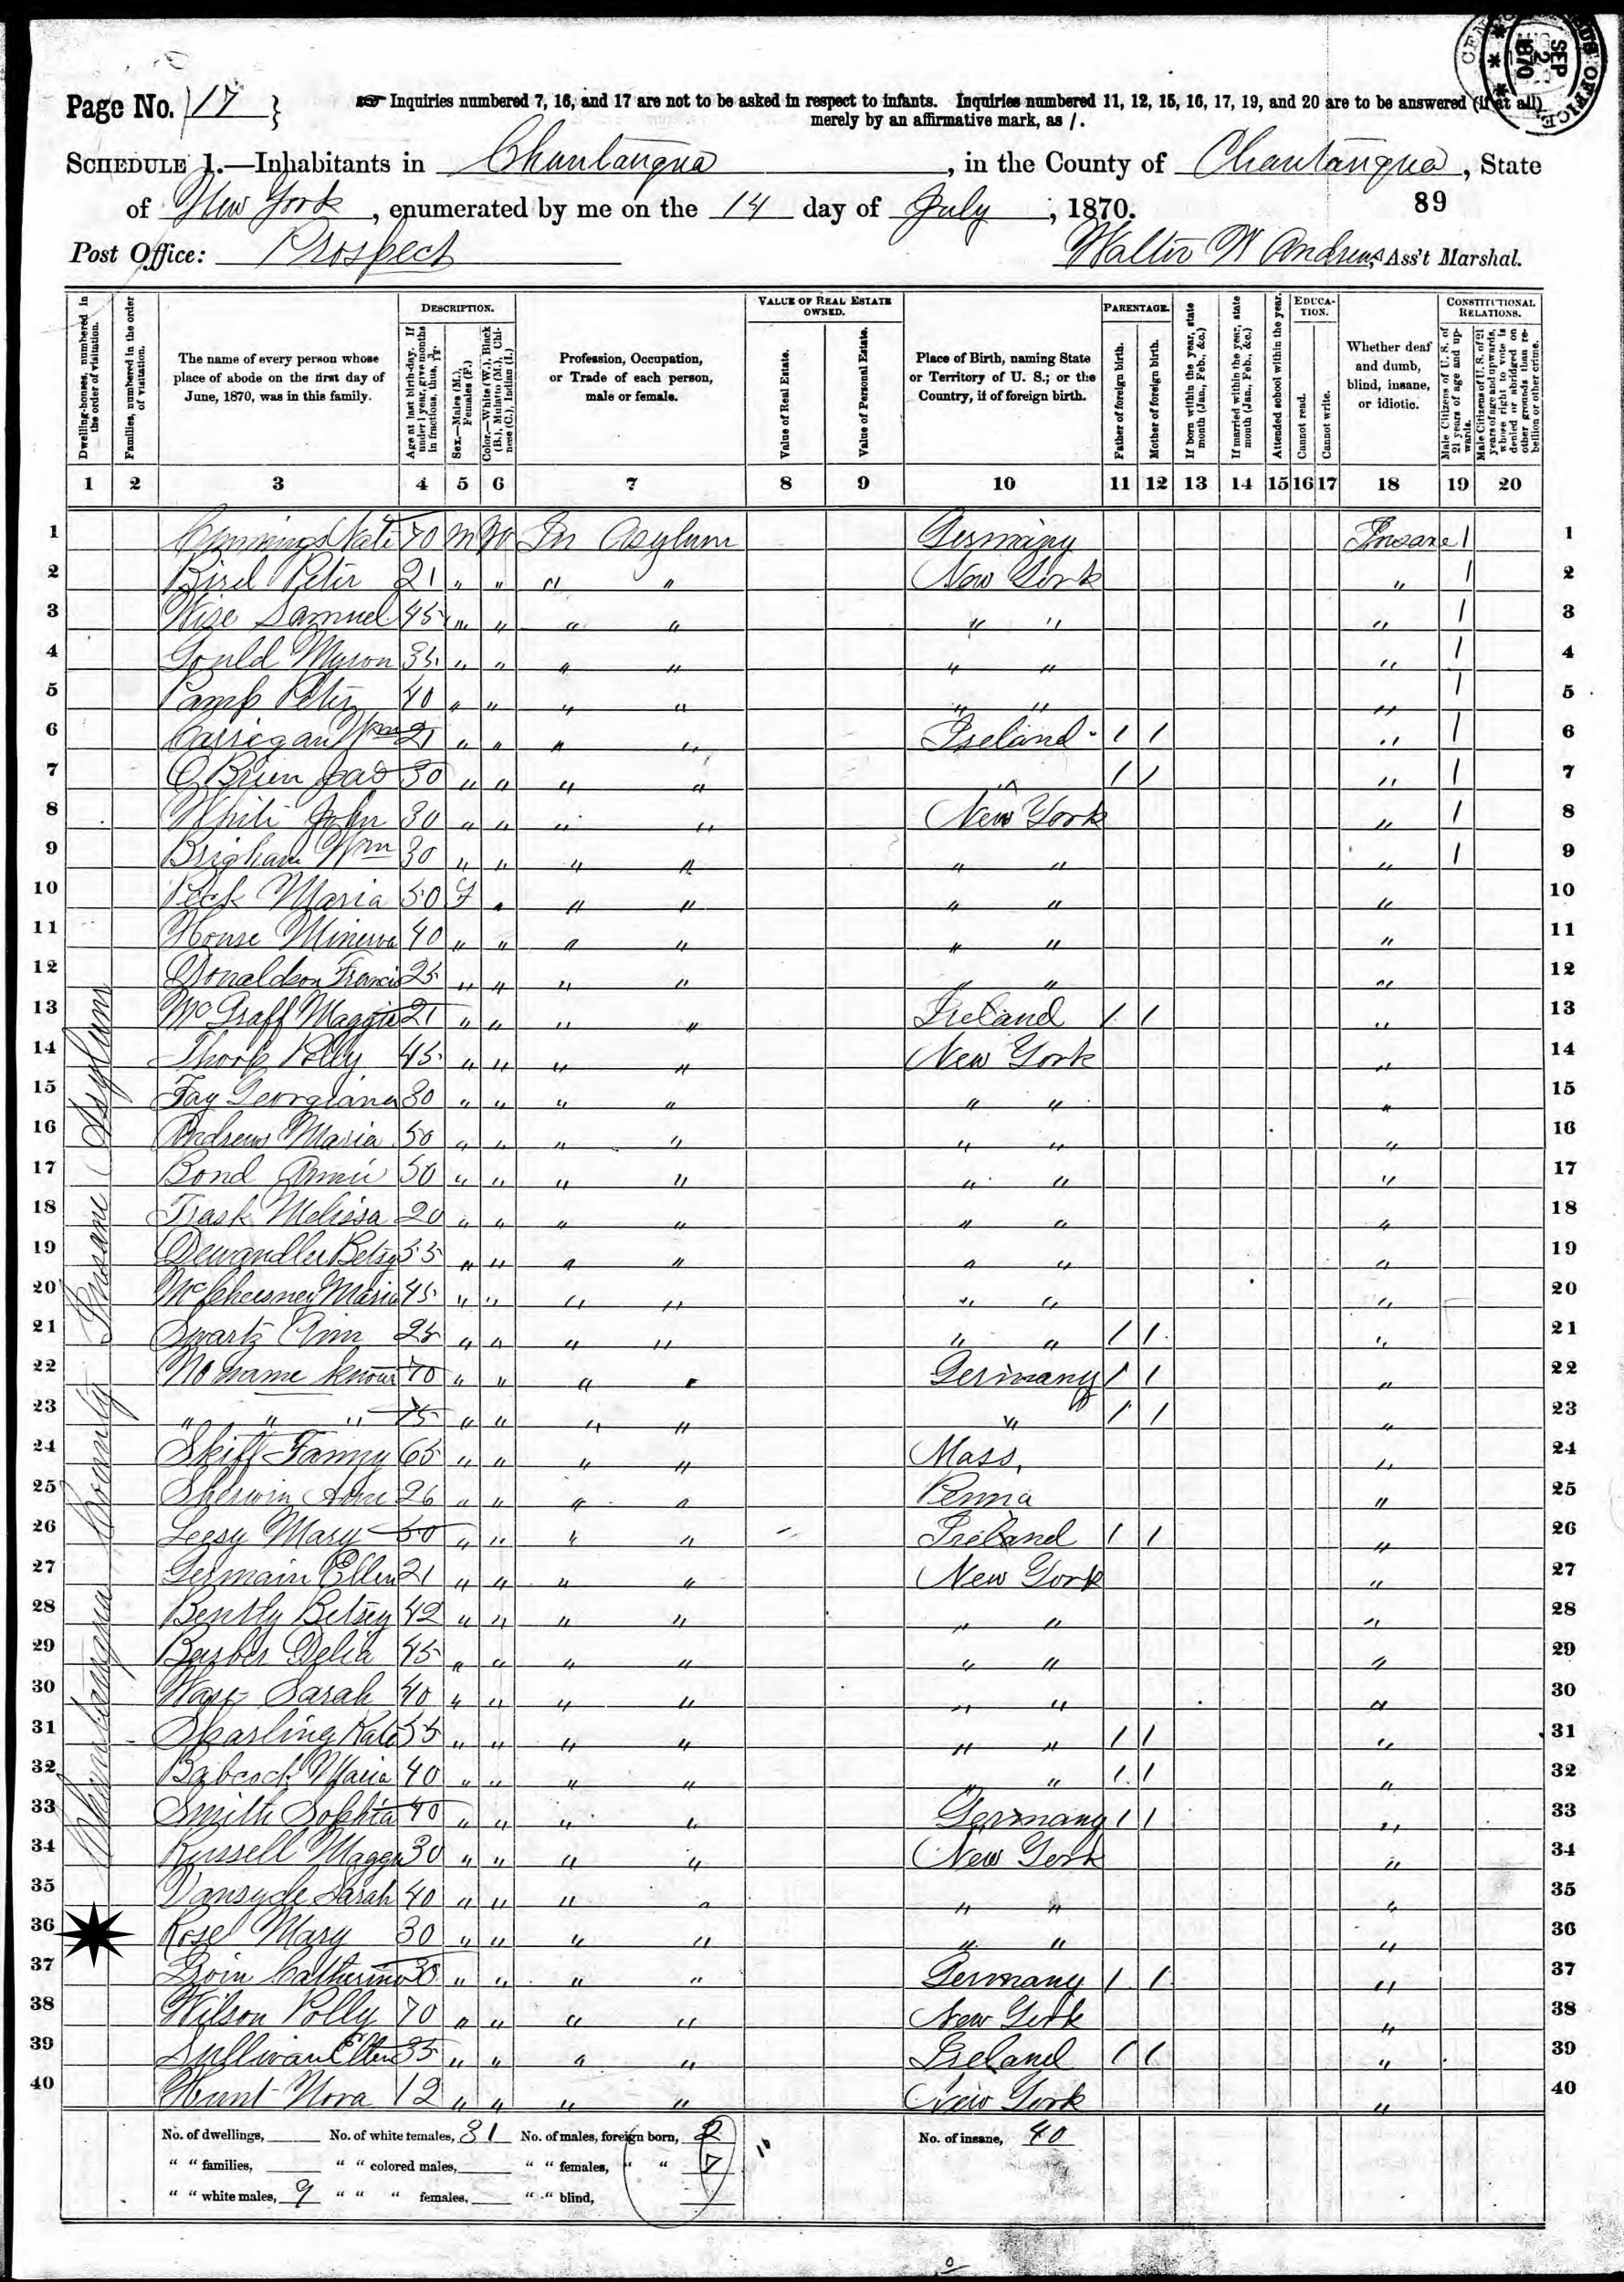 CENSUS OFFICE SEP 2 1870
Page No. 17
Inquiries numbered 7, 16, and 17 are not to be asked in respect to infants. Inquiries numbered 11, 12, 15, 16, 17, 19, and 20 are to be answered (if at all)
merely by an affirmative mark, as /.
SCHEDULE 1.—Inhabitants in Chautauqua, in the County of Chautauqua, State
of New York, enumerated by me on the 14 day of July, 1870. 89
Post Office: Prospect Walter W Andrews, Ass't Marshal.
Dwelling-houses, numbered in the order of visitation.
Families, numbered in the order of visitation.
The name of every person whose place of abode on the first day of June, 1870, was in this family.
DESCRIPTION.
Age at last birth-day. If under 1 year, give months in fractions, thus, 3/12.
Sex.—Males (M.), Females (F.)
Color.—White (W.), Black (B.), Mulatto (M.), Chinese (C.), Indian (I.)
Profession, Occupation, or Trade of each person, male or female.
VALUE OF REAL ESTATE OWNED.
Value of Real Estate.
Value of Personal Estate.
Place of Birth, naming State or Territory of U. S.; or the Country, if of foreign birth.
PARENTAGE.
Father of foreign birth.
Mother of foreign birth.
If born within the year, state month (Jan., Feb., &c.)
If married within the year, state month (Jan., Feb., &c.)
Attended school within the year.
EDUCATION.
Cannot read.
Cannot write.
Whether deaf and dumb, blind, insane, or idiotic.
CONSTITUTIONAL RELATIONS.
Male Citizens of U. S. of 21 years of age and upwards.
Male Citizens of U. S. of 21 years of age and upwards, whose right to vote is denied or abridged on other grounds than rebellion or other crime.
1 2 3 4 5 6 7 8 9 10 11 12 13 14 15 16 17 18 19 20
Chautauqua County Insane Asylum
1 70 M W In Asylum Germany Insane / 1
2 Peter 21 " " " " New York " / 2
3 Wise Samuel 45 " " " " " " " / 3
4 Gould Myron 35 " " " " " " " / 4
5 Camp Peter 40 " " " " " " " / 5
6 Carrigan Wm 21 " " " " Ireland / / " / 6
7 O Brien Jas 30 " " " " " / / " / 7
8 White John 30 " " " " New York " / 8
9 Brigham Wm 30 " " " " " " " / 9
10 Peck Maria 50 F " " " " " " 10
11 House Minerva 40 " " " " " " " 11
12 Donaldson Francis 25 " " " " " " " 12
13 McGraff Maggie 21 " " " " Ireland / / " 13
14 Thorp Polly 45 " " " " New York " 14
15 Fay Georgiana 30 " " " " " " " 15
16 Andrews Maria 50 " " " " " " " 16
17 Bond Annie 50 " " " " " " " 17
18 Trask Melissa 20 " " " " " " " 18
19 Dewandler Betsy 55 " " " " " " " 19
20 McChesney Maria 45 " " " " " " " 20
21 Swartz Ann 25 " " " " " " / / " 21
22 No name known 70 " " " " Germany / / " 22
23 " " " 75 " " " " " / / " 23
24 Skiff Fanny 65 " " " " Mass. " 24
25 Sherwin 26 " " " " Penna " 25
26 Mary 50 " " " " Ireland / / " 26
27 Germain Ellen 21 " " " " New York " 27
28 Bently Betsey 42 " " " " " " " 28
29 Barber Delia 45 " " " " " " " 29
30 Sarah 40 " " " " " " " 30
31 Sparling Kate 55 " " " " " " / / " 31
32 Babcock Maria 40 " " " " " " / / " 32
33 Smith Sophia 40 " " " " Germany / / " 33
34 Russell Maggie 30 " " " " New York " 34
35 Sarah 40 " " " " " " " 35
36 Rosel Mary 30 " " " " " " " 36
37 Catherine 30 " " " " Germany / / " 37
38 Wilson Polly 70 " " " " New York " 38
39 Sullivan Ellen 35 " " " " Ireland / / " 39
40 Hunt Nora 12 " " " " New York " 40
No. of dwellings, No. of white females, 31 No. of males, foreign born, 2 No. of insane, 40
" " families, " " colored males, " " females, " " 7
" " white males, 9 " " " females, " " blind,